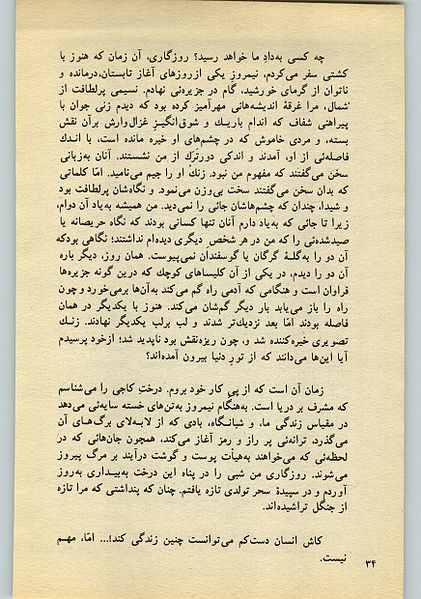 چه کسی به‌دادِ ما خواهد رسید؟ روزگاری، آن زمان که هنوز با
کشتی سفر می‌کردم، نیمروز یکی ازروزهای آغاز تابستان، درمانده و
ناتوان از گرمای خورشید، گام در جزیره‌ئی نهادم. نسیمی پرلطافت از
شمال، مرا غرقهٔ اندیشه‌هائی مهرآمیز کرده بود که دیدم زنی جوان با
پیراهنی شفاف که اندام باریک و شوق‌انگیز غزال‌وارش برآن نقش
بسته، و مردی خاموش که در چشم‌های او خیره مانده است، با اندک
فاصله‌ئی از او، آمدند و اندکی دورترَک از من نشستند. آنان به‌زبانی
سخن می‌گفتند که مفهوم من نبود. زنک او را جیم می‌نامید. امّا کلماتی
که بدان سخن می‌گفتند سخت بی‌وزن می‌نمود. و نگاه‌شان پرلطافت بود
و شیدا، چندان که چشم‌هاشان جائی را نمی‌دید. من همیشه به‌یاد آن دوام،
زیرا تا جائی که به‌یاد دارم آنان تنها کسانی بودند که نگاه حریصانه یا
صیدشده‌ئی را که من در هر شخص دیگری دیده‌ام نداشتند؛ نگاهی بودکه
آن دو را به‌گلهٔ گرگان یا گوسفندان نمی‌پیوست. همان روز، دیگر باره
آن دو را دیدم، در یکی از آن کلیساهای کوچك که درین گونه جزیره‌ها
فراوان است و هنگامی که آدمی راه گم می‌کند به‌آن‌ها برمی‌خورد و چون
راه را باز می‌یابد بار دیگر گم‌شان می‌کند. هنوز با یکدیگر در همان
فاصله بودند امّا بعد نزدیك‌تر شدند و لب برلب یکدیگر نهادند. زنک
تصویری خیره‌کننده شد و، چون ریزه‌نقش بود ناپدید شد؛ ازخود پرسیدم
آیا این‌ها می‌دانند که از تورِ دنیا بیرون آمده‌اند؟
زمان آن است که از پی کار خود بروم. درختِ کاجی را می‌شناسم
که مشرف بر دریا است. به‌هنگام نیمروز به‌تن‌های خسته سایه‌ئی می‌دهد
در مقیاس زندگی ما، و شبانگاه، بادی که از لابه‌لای برگ‌های آن
می‌گذرد، ترانه‌ئی پر راز و رمز آغاز می‌کند، همچون جان‌هائی که در
لحظه‌ئی که می‌خواهند به‌هیأت پوست و گوشت درآیند بر مرگ پیروز
می‌شوند. روزگاری من شبی را در پناه این درخت به‌بیداری به‌روز
آوردم و در سپیدهٔ سحر تولدی تازه یافتم. چنان که پنداشتی که مرا تازه
از جنگل تراشیده‌اند.
کاش انسان دست‌کم می‌توانست چنین زندگی کند!... امّا، مهم
نیست.
۳۴